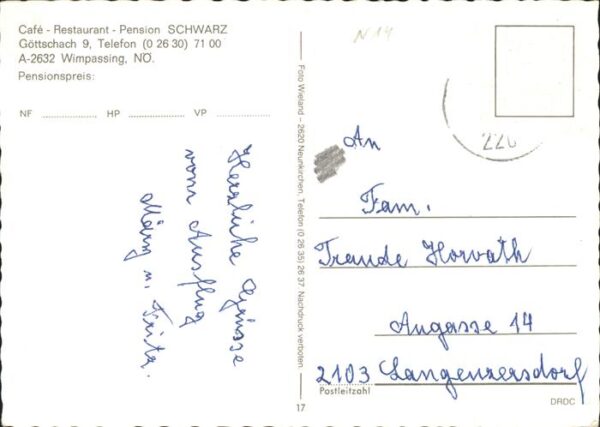 Café - Restaurant - Pension SCHWARZ
Göttschach 9, Telefon (0 26 30) 71 00
A-2632 Wimpassing, NÖ.
Pensionspreis:
NF ........................ HP ........................ VP ........................
Herzliche Grüsse
vom Ausflug
Mary u. Fritz.
Foto Wieland – 2620 Neunkirchen, Telefon (0 26 35) 26 37. Nachdruck verboten.
17
N 14
220
An
Fam.
Traude Horvath
Augasse 14
2103 Langenzersdorf
Postleitzahl
DRDC